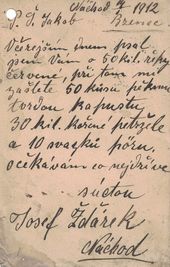 Náchod 9/4 1912
P. T. Jakob Brenec
Včerejším dnem psal
jsem Vám o 50 kil. řepy
červené, při tom mi
zašlete 50 kusů pěknou
tvrdou kapustu,
30 kil. kořené petržele
a 10 svazků póru,
očekávám co nejdříve
súctou
Josef Žďárek
Náchod